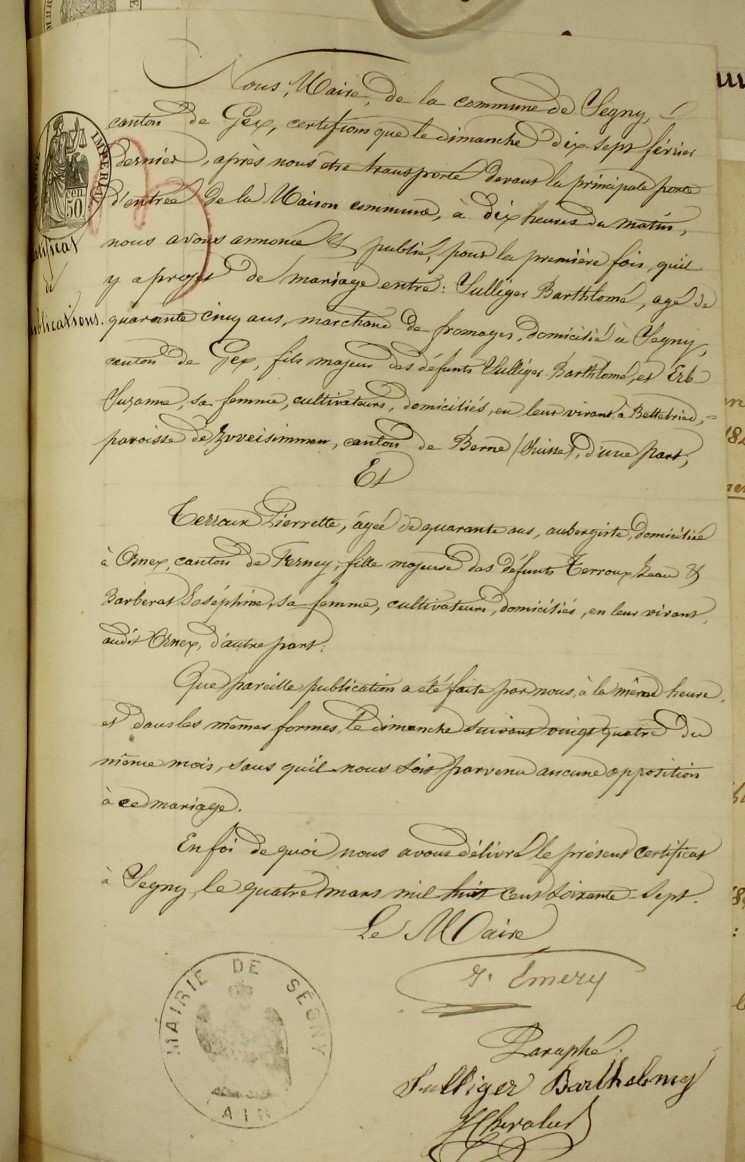 Nous, Maire, de la commune de Segny,
canton de Gex, certifions que le dimanche dix sept février
dernier, après nous être transporté devant la principale porte
d'entrée de la Maison commune, à dix heures du matin,
nous avons annoncé & publié, pour la première fois, qu'il
y a projet de mariage entre: Sulliger Barthlomé, agé de
quarante cinq ans, marchand de fromages, domicilié à Segny,
canton de Gex, fils majeur des défunts Sulliger Barthlomé, et Erb
Suzanne, sa femme, cultivateurs, domiciliés, en leur vivant à Bettebried,
paroisse de Zoveisimmen, canton de Berne (Suisse), d'une part,
Et
Terroux Pierrette, âgée de quarante ans, aubergiste, domiciliée
à Ornex, canton de Ferney, fille majeure des défunts Terroux Jean &
Barberat Joséphine, sa femme, cultivateurs, domiciliés, en leur vivant,
audit Ornex, d'autre part.
Que pareille publication a été faite par nous, à la même heure,
et dans les mêmes formes, le dimanche suivant vingt quatre du
même mois, sans qu'il nous soit parvenu aucune opposition
à ce mariage.
En foi de quoi nous avons délivré le présent certificat
à Segny, le quatre mars mil huit cent soixante-sept.
Le Maire
Emery
Paraphé.
Sulliger Barthelemy
Chevalier
MAIRIE DE SÉGNY
AIN
IMPERIAL
50 cen
Certificat
de
publications.